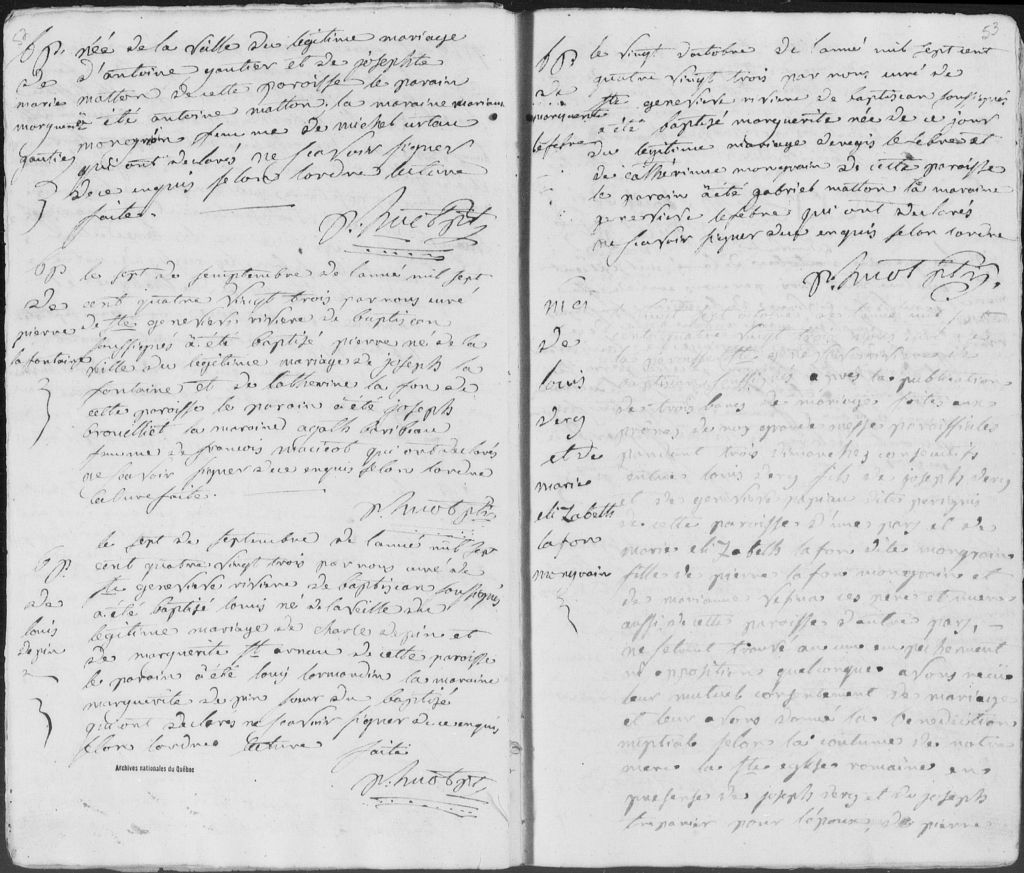 bp. née de la veille du légitime mariage
de d'antoine gautier et de josephte
marie matton de cette paroisse le parain
marguerite a été antoine matton la maraine mariane
mongrain femme de michel
gautier qui ont declarés ne scavoir signer
de ce enquis selon lordre lecture
faite.
p. huot ptr
bp. le sept de semptembre de lanné mil sept
de cent quatre vingt trois par nous curé
pierre de ste genevieve riviere de baptiscan
la fontaine soussignés a été baptizé pierre né de la
veille du légitime mariage de joseph la
fontaine et de catherine la fon de
cette paroisse le parain a été joseph
brouilliet la maraine agath baribeau
femme de francois macicot qui ont declarés
ne scavoir signer de ce enquis selon lordre
lecture faite.
p. huot ptr
le sept de septembre de lanné mil sept
bp. cent quatre vingt trois par nous curé de
ste genevieve riviere de baptiscan soussignés
de a été baptizé louis né de la veille du
louis légitime mariage de charle depin et
depin de marguerite st arnau de cette paroisse
le parain a été louis cormandin la maraine
marguerite depin sœur du baptizé
qui ont declares ne scavoir signer de ce enquis
selon lordre lecture faite
Archives nationales du Québec
p. huot ptr
53
bp. le vingt doctobre de lanné mil sept cent
de quatre vingt trois par nous curé de
ste genevieve riviere de baptiscan soussignés
marguerite a été baptizé marguerite née de ce jour
lefebre du légitime mariage de regis lefebre et
de catherinne mongrain de cette paroisse
le parain a été gabriel matton la maraine
genevieve lefebre qui ont declarés
ne scavoir signer de ce enquis selon lordre
p. huot ptr.
de
louis apres la publication
de trois bancs de mariage faites aux
dery prônes de nos grande messe paroissialles
pendant trois dimanches consecutifs
et de entre louis dery fils de joseph dery
marie et de genevieve papiau dit perignis
elizabeth de cette paroisse d'une part et de
lafon marie elizabeth lafon dite mongrain
mongrain fille de pierre lafon mongrain et
de marianne ces pere et mere
aussi de cette paroisse d'autre part,
ne setant trouvé aucun empechement
ni opposition quelconque avons recü
leur mutuel consentement de mariage
et leur avons donné la benediction
nuptiale selon la coutume de notre
mere la ste eglise romaine en
presense de joseph dery et de joseph
treparier pour lepoux, de pierre